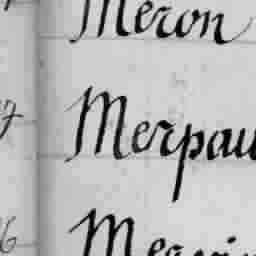 Meron
7 Merpau
6